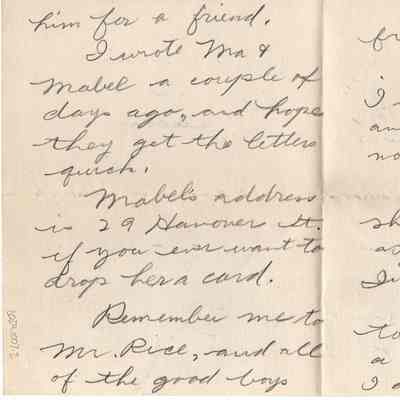 him for a friend.
I wrote Ma &
Mabel a couple of
days ago, and hope
they get the letters
quick.
Mabel's address
is 29 Hanover St.
if you ever want to
drop her a card.
Remember me to
Mr. Rice, and all
of the good boys
fr
I
an
no
sh
as
I'
to
a
I a